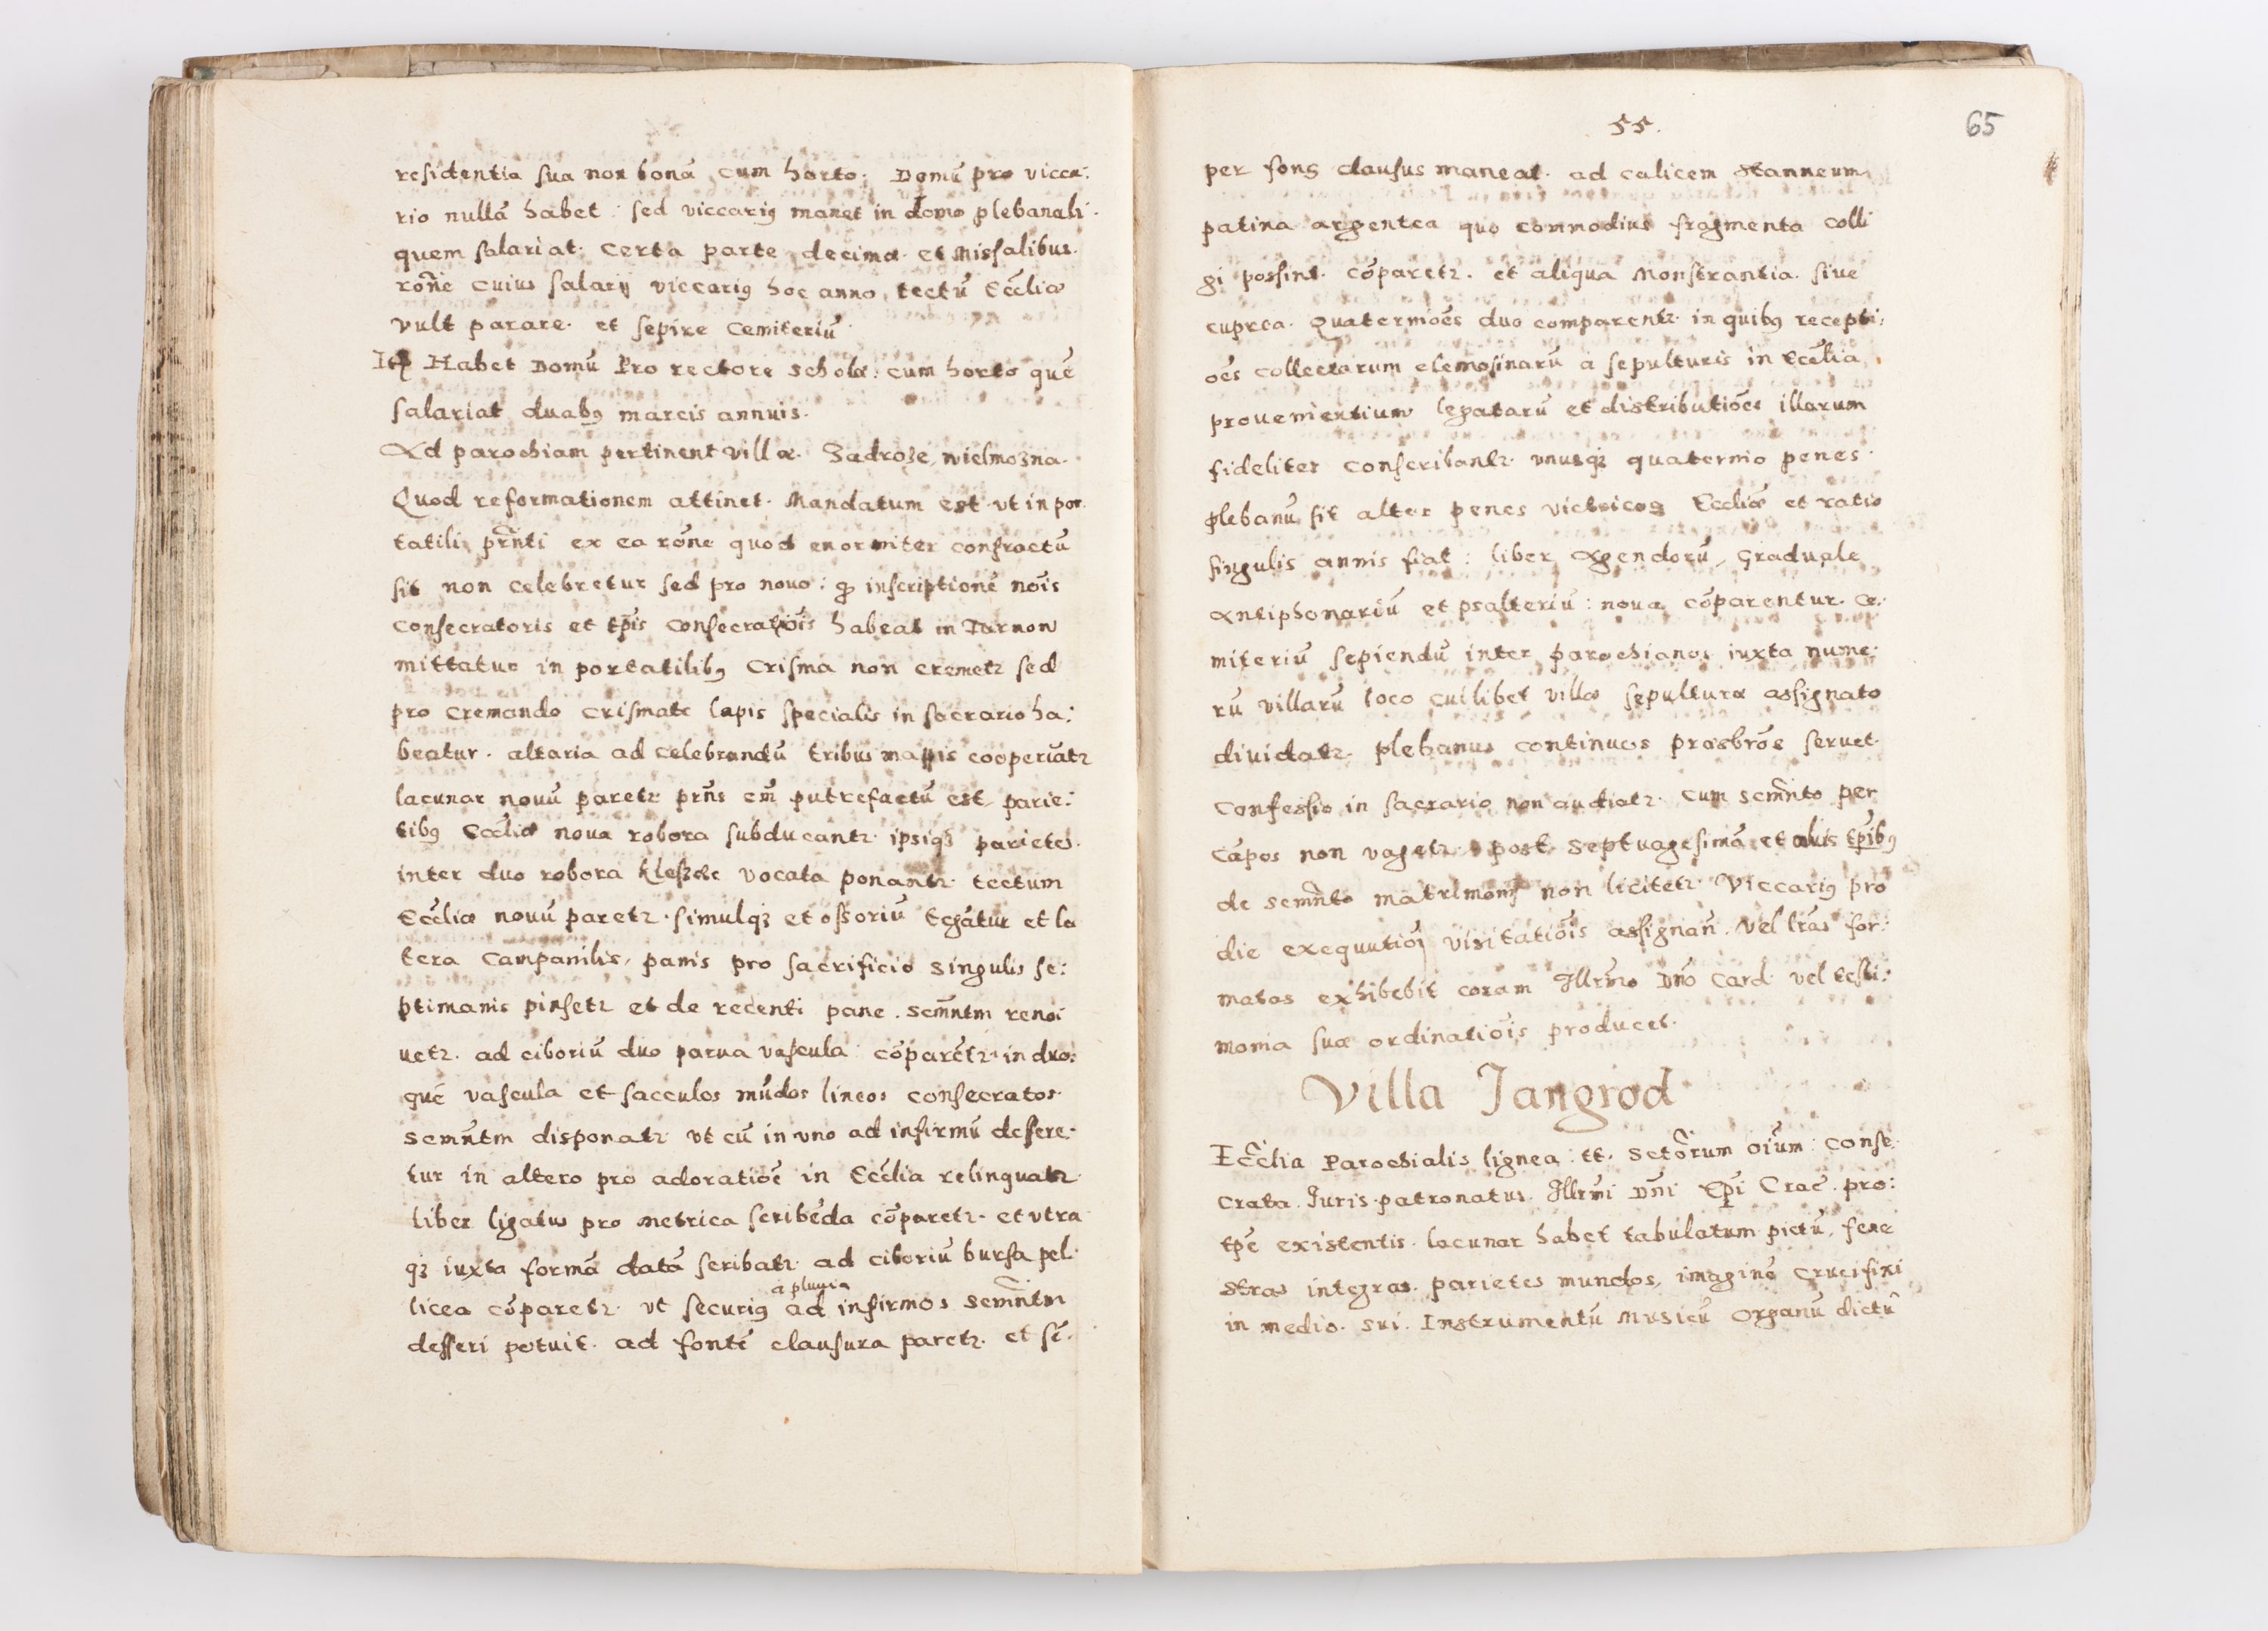 residentia sua non bonā cum horto. Domū pro vicca:
rio nullā habet: sed viccariꝰ manet in domo plebanali.
quem salariat. certa parte decimæ. et Missalibus.
rōne cuius salarij viccariꝰ hoc anno, tectū Ecčliæ
vult parare. et sepire Cemiteriū.
Itē Habet Domū Pro rectore scholæ: cum horto quē
salariat duabꝰ marcis annuis.
Ad parochiam pertinent villæ. Zadroze, wielmozna.
Quod reformationem attinet. Mandatum est. vt in por
tatili pr̄nti ex ea rōne quod enormiter confractū
sit non celebretur sed pro nouo: ꝓ inscriptionē nōis
consecratoris et tp̄is consecratiōis habeat in Tarnow
mittatur in portatilibꝰ Crisma non cremetr sed
pro cremando crismate lapis specialis in sacrario ha:
beatur. altaria ad celebrandū tribus mappis cooperiātr
lacunar nouū paretr pr̄ns em̄ putrefactū est. parie:
tibꝰ Ecčliæ noua robora subducantr. ipsiqꝫ parietes.
inter duo robora kleszcze vocata ponantr. tectum
Ecčliæ nouū paretr. simulqꝫ et ossoriū tegātur et la
tera Campanilis, panis pro sacrificio singulis se:
ptimanis pinsetr et de recenti pane. scm̄ntm renoi
uetr. ad ciboriū duo parua vascula cōparētr. in duo:
quē vascula et sacculos mūdos lineos consecratos.
scm̄ntm disponatr vt cū in vno ad infirmū defere:
tur in altero pro adoratiōe in Ecčlia relinquatr.
liber ligatus pro metrica scribēda cōparetr. et vtra
qꝫ iuxta formā datā scribatr. ad ciboriū bursa pel:
a pluuia
licea cōparetr. vt securiꝰ ad infirmos scm̄ntm
defferi potuit. ad fontē clausura paretr. et sē.
55.
65
per fons clausus maneat. ad calicem stanneum
patina argentea quo commodius fragmenta colli
gi possint. cōparetr. et aliqua Monstrantia. siue
cuprea. Quaterniōes duo comparentr. in quibꝰ recepti:
ōes collectarum elemosinarū a sepulturis in Ecčlia
prouenientium legatarū et distributiōes illarum
fideliter conscribantr. vnusqꝫ quaternio penes
plebanū sit alter penes victricos Ecčliæ et ratio
singulis annis fiat: liber Agendorū, Graduale
Antiphonariū et psalteriū: noua cōparentur. Ce.
miteriū sepiendū inter parochianos iuxta nume:
rū villarū loco cuilibet villæ sepulturæ assignato
diuidatr. plebanus continuos præsbrōs seruet.
Confessio in sacrario non audiatr. cum scm̄nto per
Cāpos non vagetr. post septuagesimā et alijs tp̄ibꝰ
de scm̄nto matrimonij non licitetr. Viccariꝰ pro
die exequutiōi visitatiōis assignan̄. Vel lr̄as for:
matas exhibebit coram Illrm̄o Dn̄o Card. vel testi:
monia suæ ordinatiōis producet.
Villa Jangrod
Ecčlia Parochialis lignea: tt. Sctōrum oīum: conse.
crata. Juris patronatus. Illrm̄i Dn̄i Ep̄i Crac̄. pro:
tp̄e existentis. lacunar habet tabulatum pictū, fene
stras integras. parietes mundos, imaginē Crucifixi
in medio. sui. Instrumentū Musicū Organū dictū